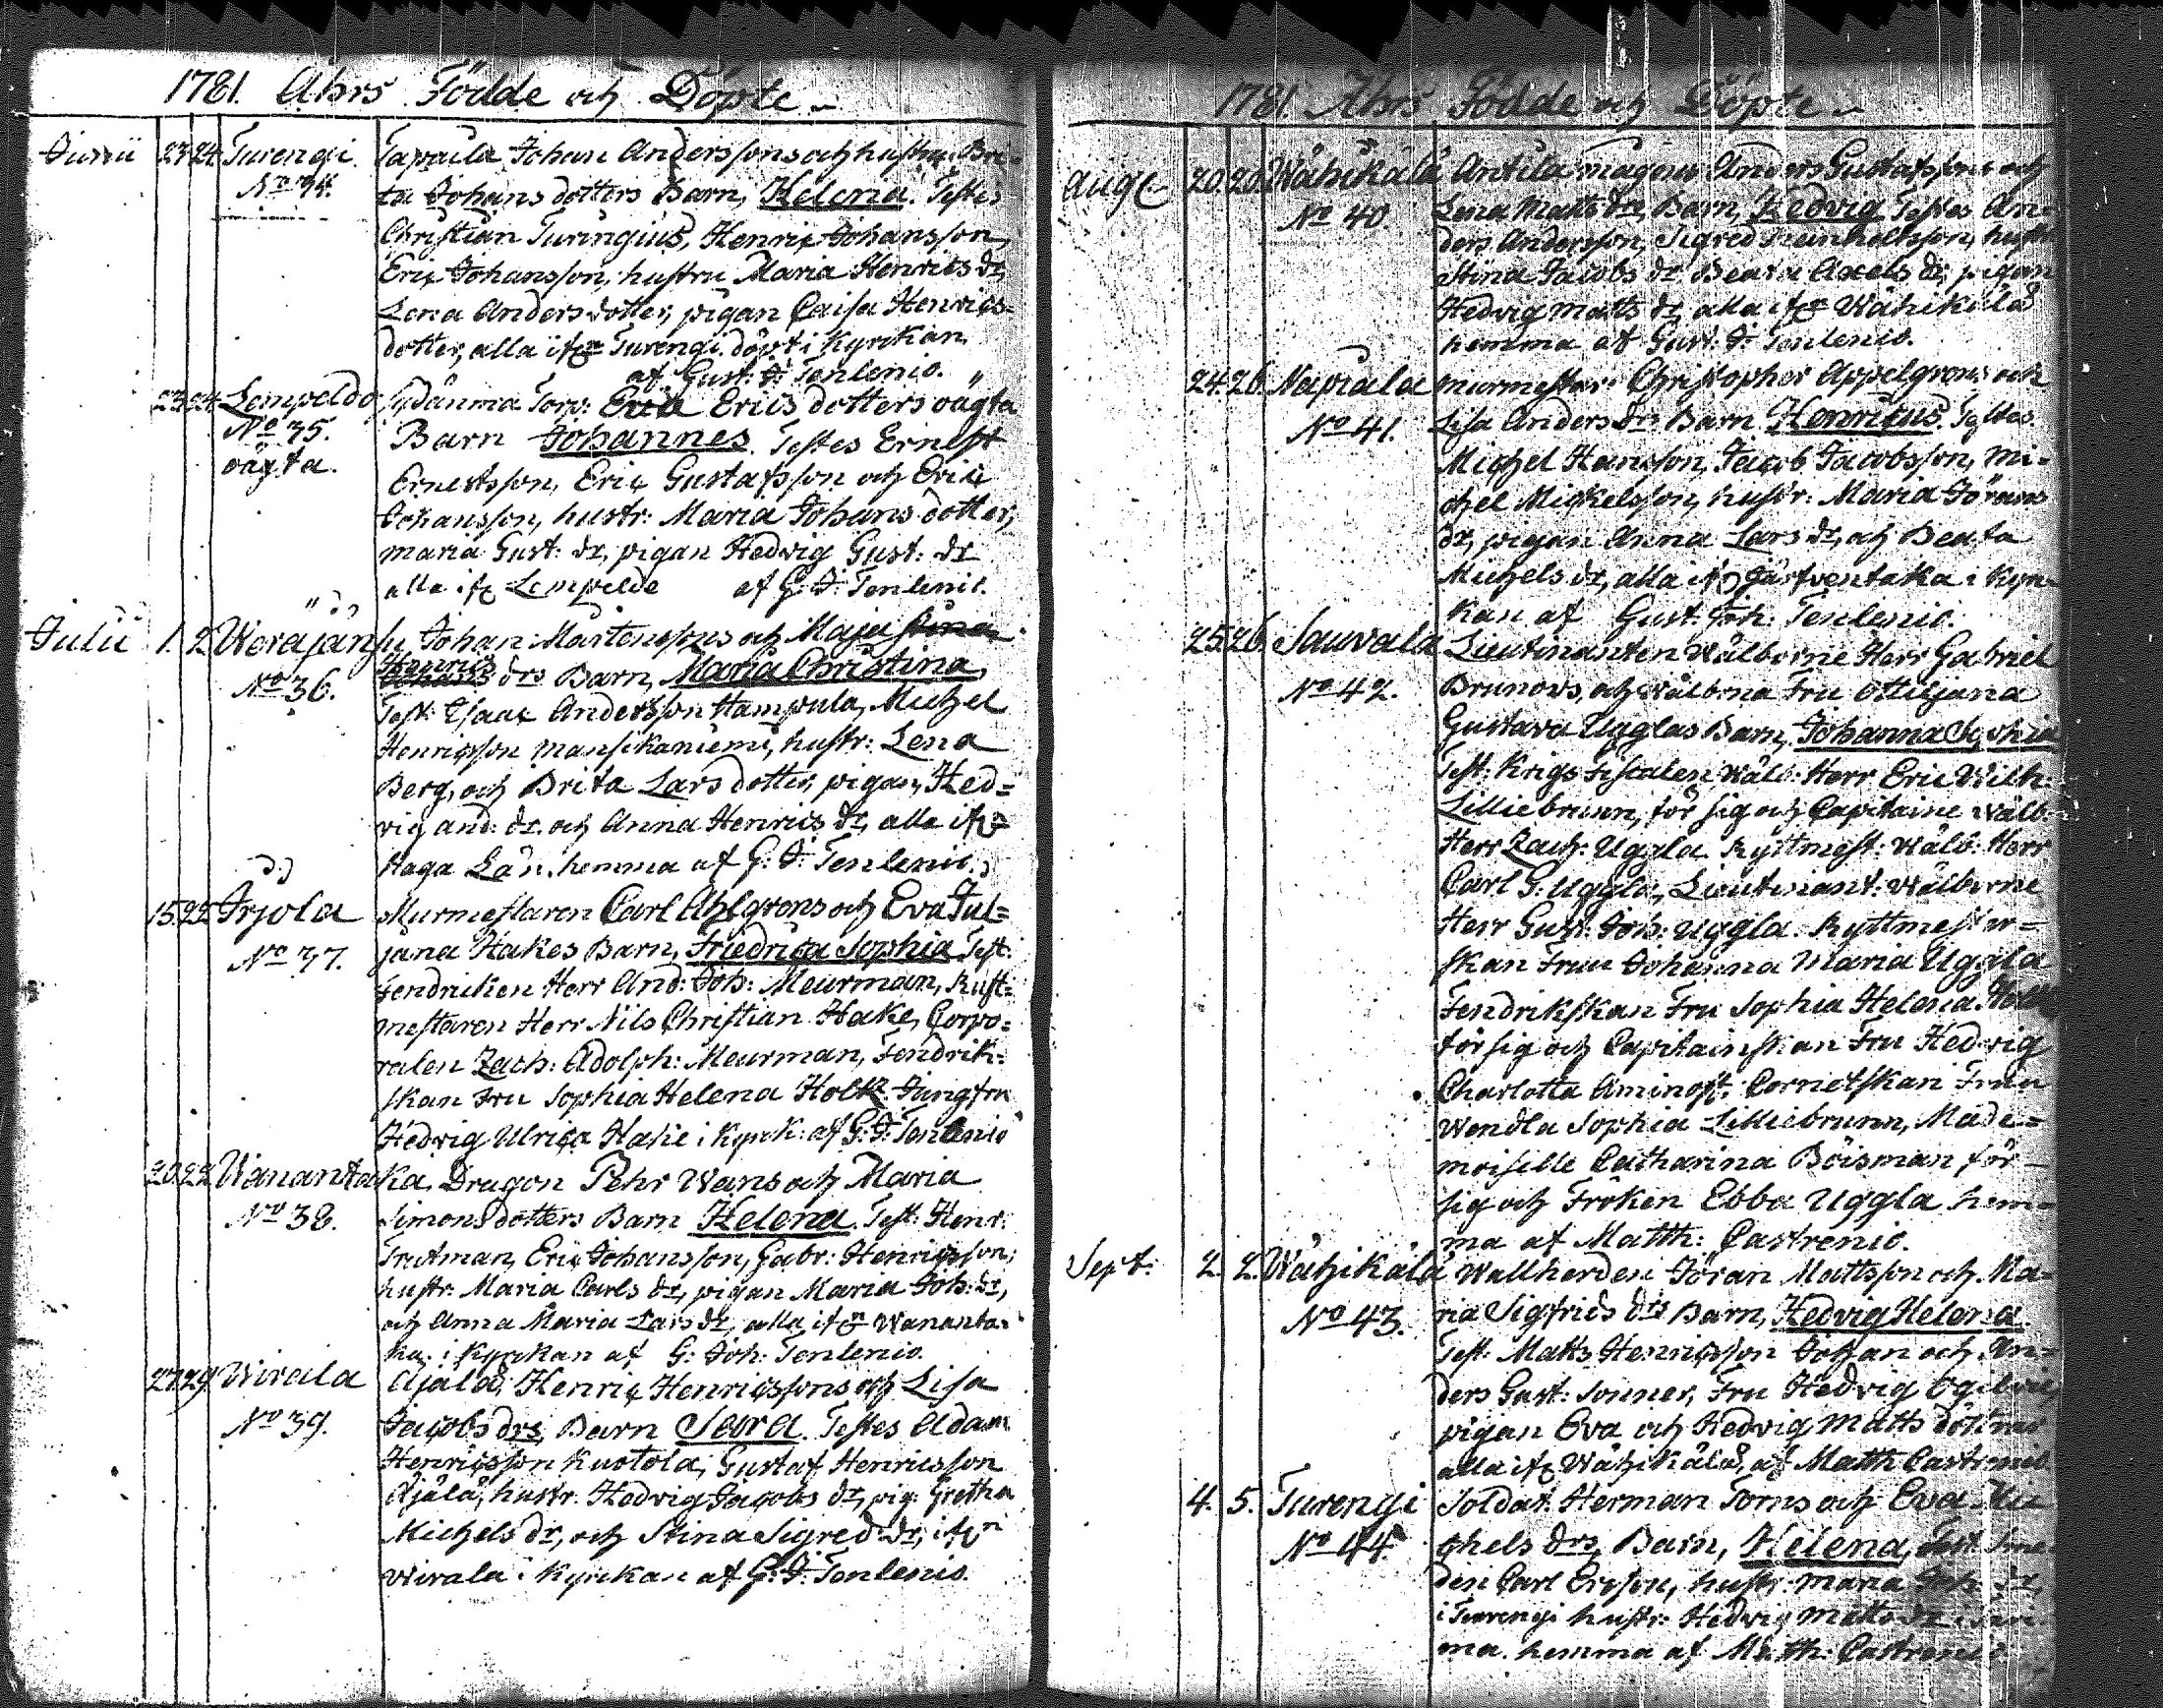 1781. Ahrs Födde och Döpte
Junii 23 24 Turengi. Tapaila Johan Anderssons och hustru Bri-
No 34. ta Johans dotters Barn, Helena. Testes
Christian Turingius, Henric Johansson,
Eric Johansson, hustru Maria Henrics dr,
Lena Anders dotter, pigan Caisa Henrics=
dotter, alla ifrn Turengi. döpt i Kyrckan
af Gust: J: Tenlenio.
23 24 Lempeldo Torp: Eva Erics dotters oägta
No 35. Barn Johannes. Testes Ernest
oägta. Ernestsson, Eric Gustafsson och Eric
Johansson, hustr: Maria Johans dotter,
Maria Gust: dr, pigan Hedvig Gust: dr
alla ifr Lempelde af G: J: Tenlenio.
Julii 1. 2 Werajänsu Johan Mårtenssons och Maja Stina
Henrics
No 36. Johans drs Barn, Maria Christina,
Test: Esaac Andersson Hampula, Michel
Henricsson Mansikaniemi, hustr: Lena
Berg, och Brita Lars dotter, pigan, Hed=
vig And: dr. och Anna Henrics dr, alla ifr
Haga Län. hemma af G: J: Tenlenio.
15 22 Irjola Murmestaren Carl Ahlgrens och Eva Jul=
No 37. jana Hakes Barn, Friedrica Sophia Test:
Fendricken Herr And: Joh: Meurman, Rust=
mestaren Herr Nils Christian Hake, Corpo=
ralen Zach: Adolph: Meurman, Fendrik=
skan Fru Sophia Helena Holtz Jungfru
Hedvig Ulrica Hake i Kyrck: af G: J: Tenlenio
20. 22 Wanantaka, Dragon Pehr Wans och Maria
No 38. Simons dotters Barn Helena. Test: Henr:
Trutman, Eric Johansson, Gabr: Henricsson,
hustr: Maria Carls dr, pigan Maria Joh: dr,
och Anna Maria Lars dr, alla ifrn Wananta-
ka. i Kyrckan af G: Joh: Tenlenio.
27 29 Wirala Ajalä, Henric Henricssons och Lisa
No 39. Jacobs drs Barn Sara. Testes Adam
Henricsson Kuotola, Gustaf Henricsson
Äjälä, hustr. Hedvig Jacobs dr, pig: Gretha
Michels dr, och Stina Sigred dr, ifrn
Wirala i Kyrckan af G: J: Tenlenio.
1781. Ahrs Födde och Döpte
Aug 20. 20. Wåhikålå Antila mågens Anders Gustafssons och
No 40. Lena Matts drs, Barn, Hedvig Testes An-
ders Andersson, Sigred Reinholtsson, hustr
Stina Jacobs dr Beata Axels dr, pigan
Hedvig Matts dr, alla ifrn Wåhikålå
hemma af Gust. J: Tenlenio.
24. 26. Napiala murmestar: Christopher Appelgrens och
No 41. Lisa Anders drs Barn Henricus. Testes
Michel Hansson, Jacob Jacobsson, Mi-
chel Mickelsson, hustr: Maria Jörans
dr, pigan Anna Lars dr, och Beata
Michels dr, alla i Kyrc-
kan af Gust: Joh: Tenlenio.
25. 26. Sauvala Lieutinanten Wälborne Herr Gabriel
No 42. Brunows, och Wälborna Fru Ottiljana
Gustava Ugglas Barn, Johanna Sophia
Test: Krigs Fiscalen, Wälb: Herr Eric Wilh:
Lilliebrunn, för sig och Capitaine Wälb:
Herr Zach: Uggla Ryttmest: Wälb: Herr
Carl G: Uggla, Lieutinant: Wälborne
Herr Gust: Joh: Uggla. Ryttmestar=
skan Fruu Johanna Maria Uggla
Fendrikskan Fru Sophia Helena Holtz
för sig och Capitainskan Fru Hedvig
Charlotta Aminoff, Cornetskan Fruu
Wendla Sophia Lilliebrunn, Made=
moiselle Catharina Böisman, för
sig och Fröken Ebba Uggla hem=
ma af Matth: Castrenio.
Sept: 2. 2. Wåhikålå Wallherden Jöran Mattsson och Ma=
No 43. ria Sigfrids drs Barn, Hedvig Helena
Test: Matts Henricsson Johan och An-
ders Gust: Sonner, Fru Hedvig Ogilvie,
pigan Eva och Hedvig Matts döttrar
alla ifr Wåhikålå, af Matth Castrenio
4. 5. Turengi Soldat: Herman Torns och Eva Mi
No 44. chels drs, Barn, Helena, Test. Sme
den Carl Ersson, hustr: Maria Joh: dr,
i Turengi hustr: Hedvig Matts dr
ma. hemma af Matth: Castrenio